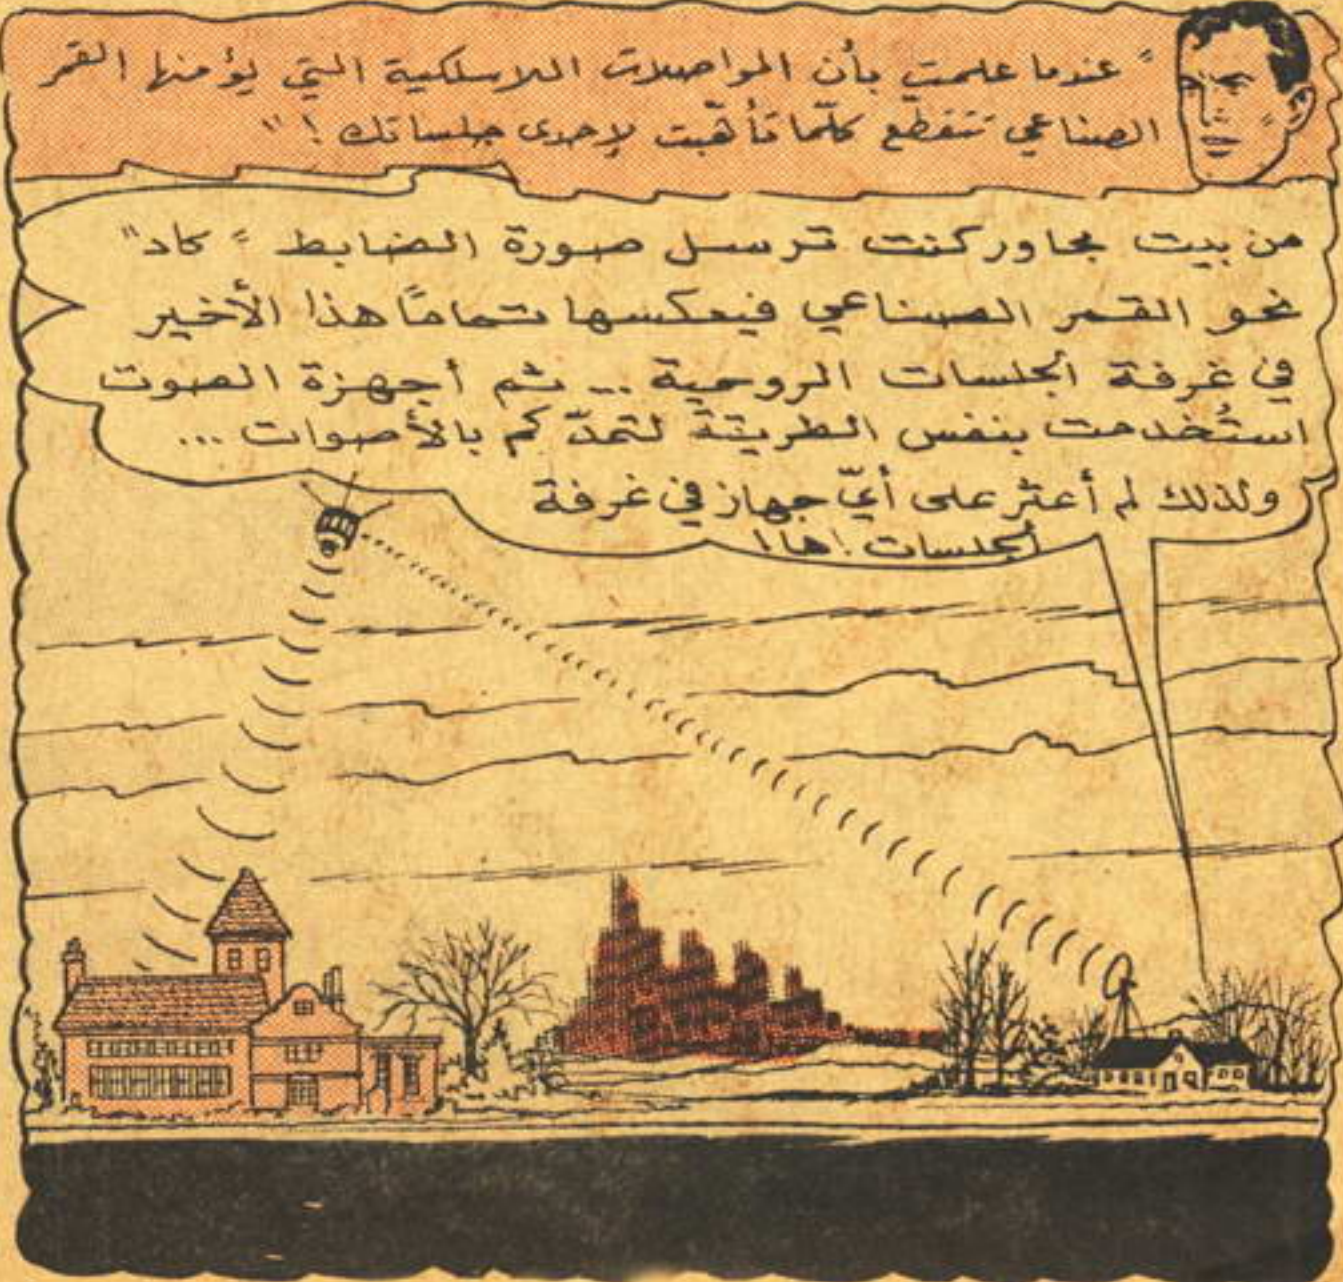 "عندما علمت بأن المواصلات اللاسلكية التي يؤمنها القمر
الصناعي تتقطع كلّما تأهّبت لإحدى جلساتك !"
من بيت مجاور كنت ترسل صورة الضابط "كاد"
نحو القمر الصناعي فيعكسها تمامًا هذا الأخير
في غرفة الجلسات الروحية .. ثم أجهزة الصوت
استُخدمت بنفس الطريقة لتمدّكم بالأصوات ...
ولذلك لم أعثر على أيّ جهاز في غرفة
الجلسات ! ها !